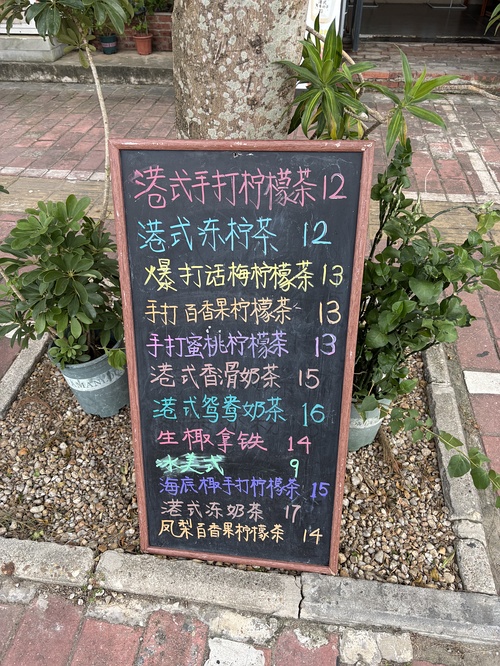 港式手打柠檬茶 12
港式冻柠茶 12
爆打话梅柠檬茶 13
手打百香果柠檬茶 13
手打蜜桃柠檬茶 13
港式香滑奶茶 15
港式鸳鸯奶茶 16
生椰拿铁 14
冰美式 9
海底椰手打柠檬茶 15
港式冻奶茶 17
凤梨百香果柠檬茶 14